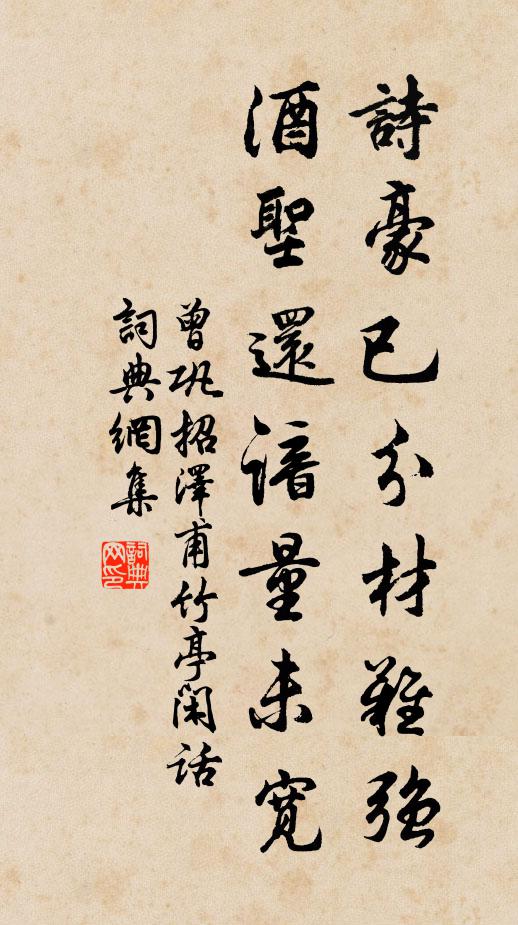 詩豪已分材難強
酒聖還諳量未寬
曾巩招澤甫竹亭閑話
詞典網集
詞典网印